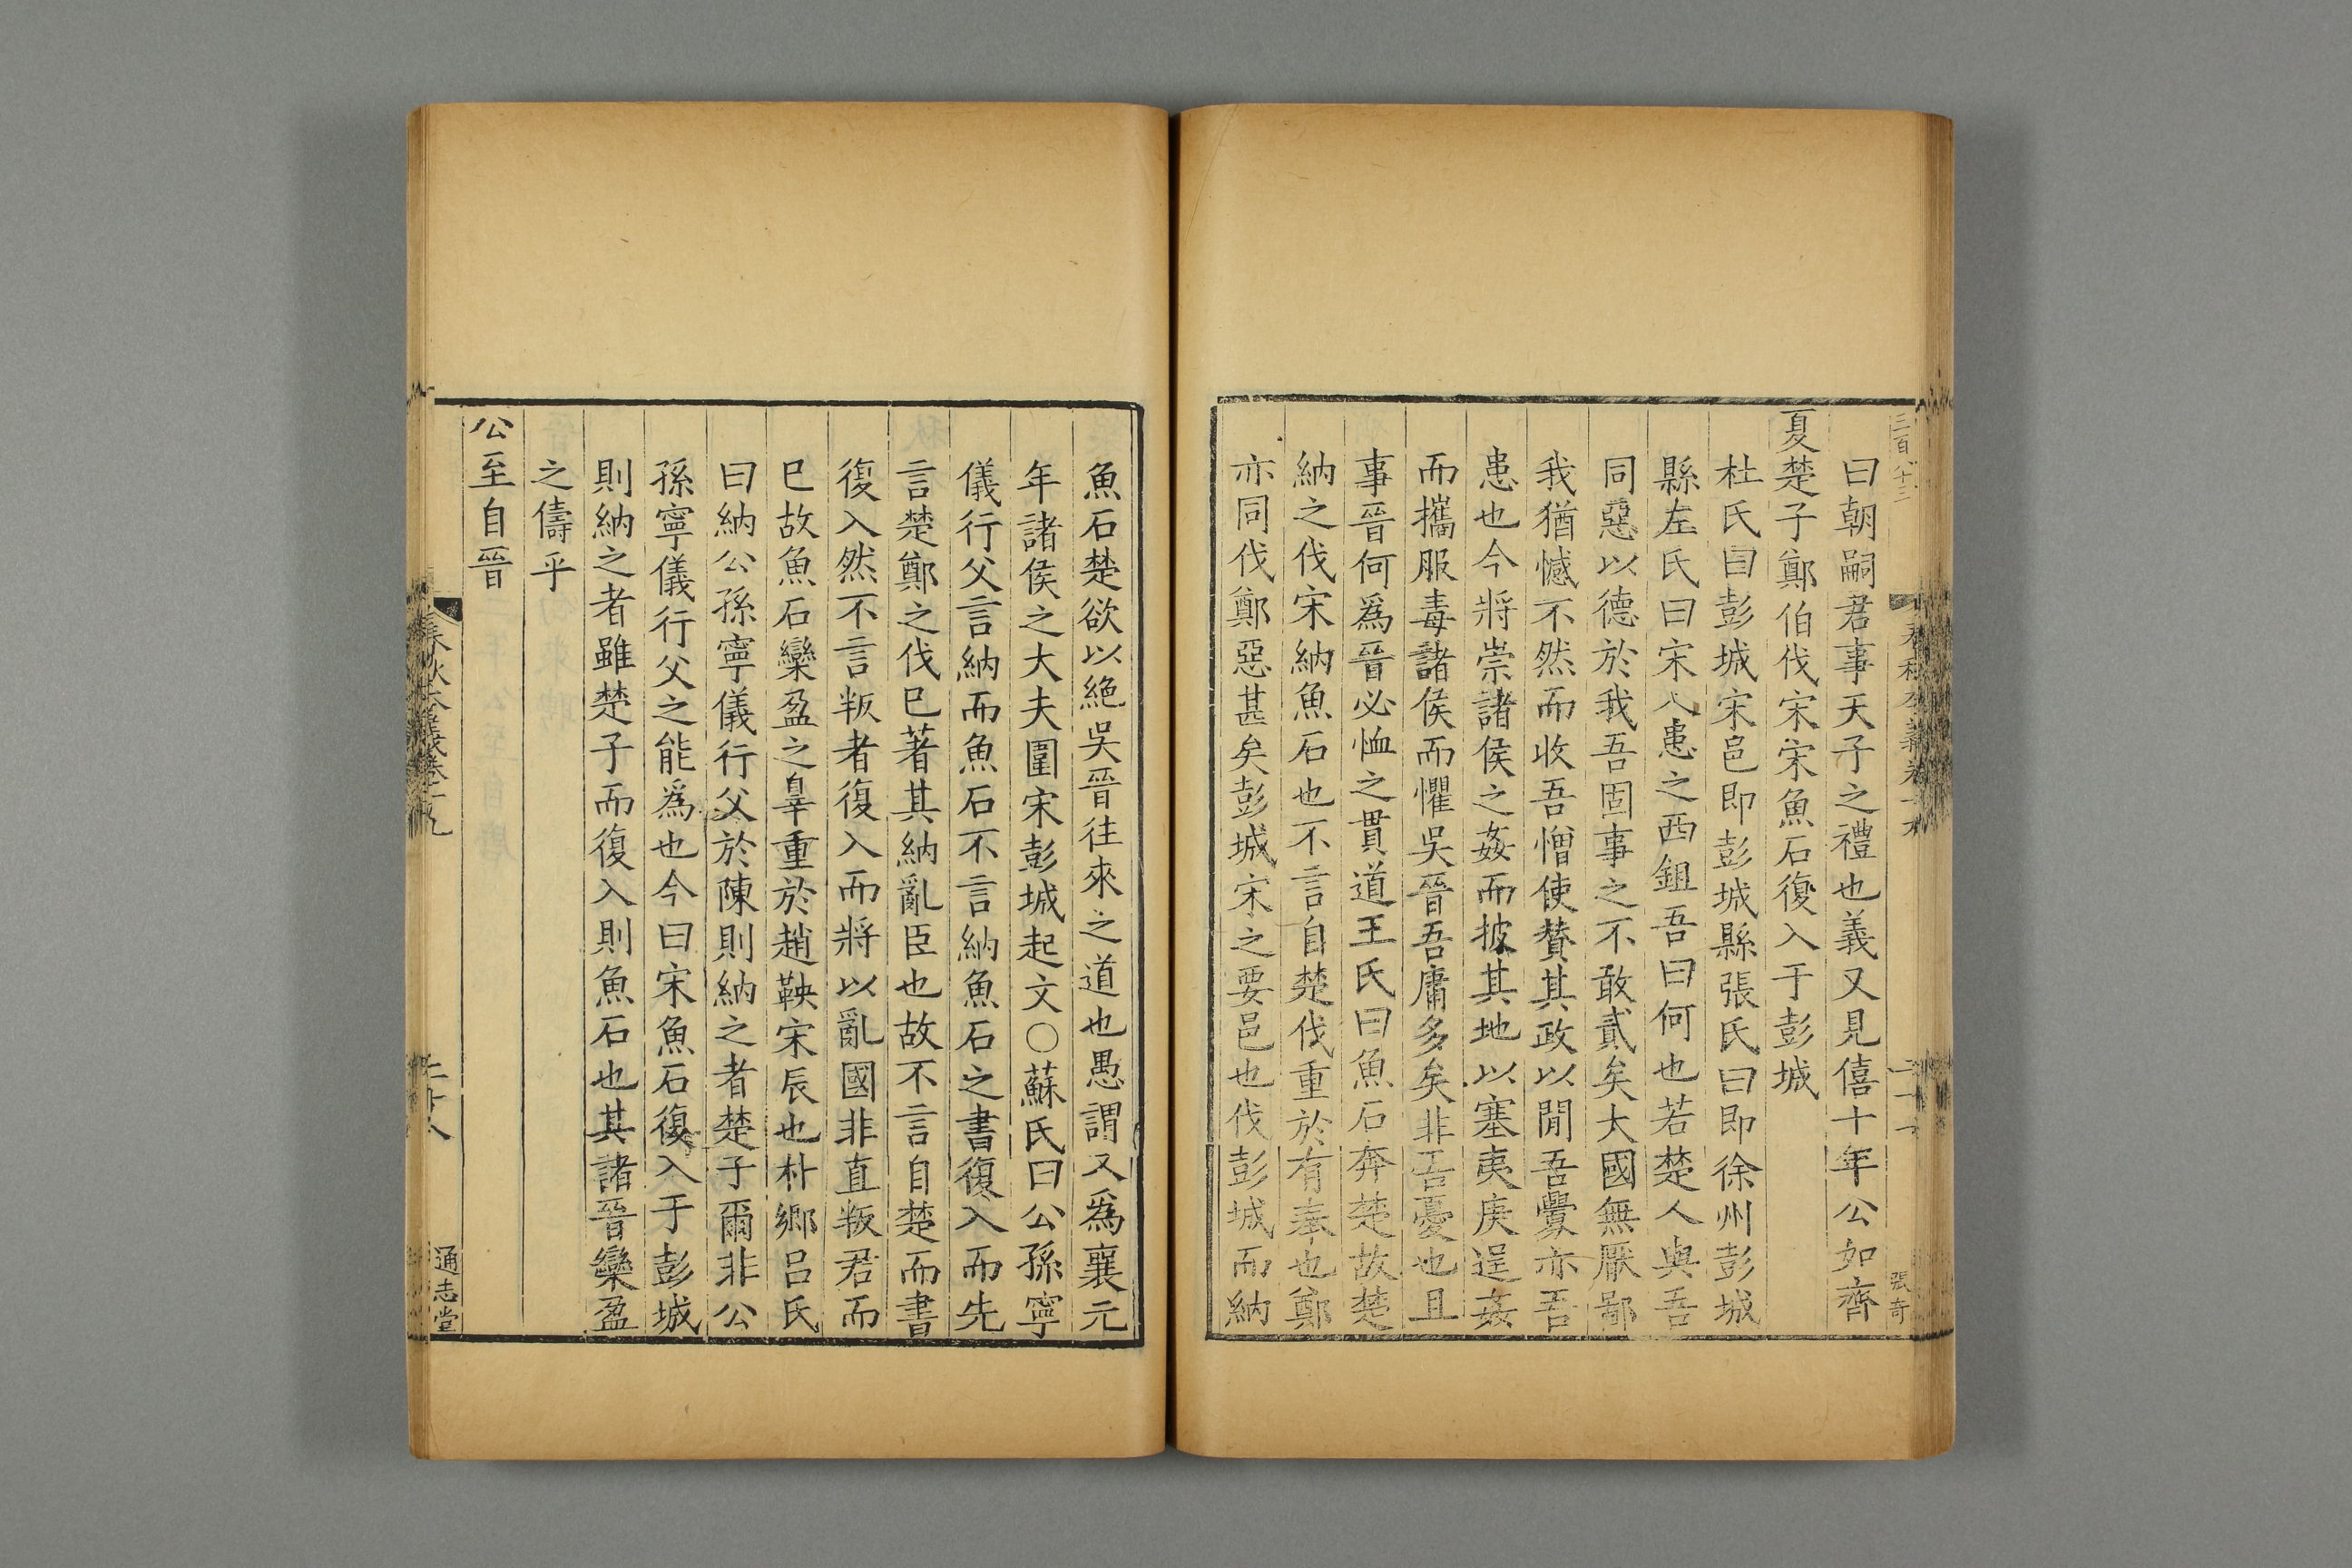 三百八十三
張奇
曰朝嗣君事天子之禮也義又見僖十年公如齊
夏楚子鄭伯伐宋宋魚石復入于彭城
杜氏曰彭城宋邑即彭城縣張氏曰即徐州彭城
縣左氏曰宋人患之西鉏吾曰何也若楚人與吾
同惡以德於我吾固事之不敢貳矣大國無厭鄙
我猶憾不然而收吾憎使贊其政以閒吾釁亦吾
患也今將崇諸侯之姦而披其地以塞夷庚逞姦
而攜服毒諸侯而懼吳晉吾庸多矣非吾憂也且
事晉何爲晉必恤之貫道王氏曰魚石奔楚故楚
納之伐宋納魚石也不言自楚伐重於有奉也鄭
亦同伐鄭惡甚矣彭城宋之要邑也伐彭城而納
魚石楚欲以絶吳晉往來之道也愚謂又爲襄元
年諸侯之大夫圍宋彭城起文○蘇氏曰公孫寧
儀行父言納而魚石不言納魚石之書復入而先
言楚鄭之伐巳著其納亂臣也故不言自楚而書
復入然不言叛者復入而將以亂國非直叛君而
巳故魚石欒盈之辠重於趙鞅宋辰也朴鄉呂氏
曰納公孫寧儀行父於陳則納之者楚子爾非公
孫寧儀行父之能爲也今曰宋魚石復入于彭城
則納之者雖楚子而復入則魚石也其諸晉欒盈
之儔乎
公至自晉
春秋本義卷十九
通志堂